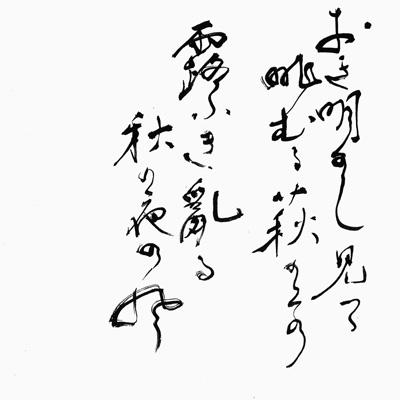 おき明かし見つゝ
眺むる萩の上の
露ふき乱る
秋の夜の風